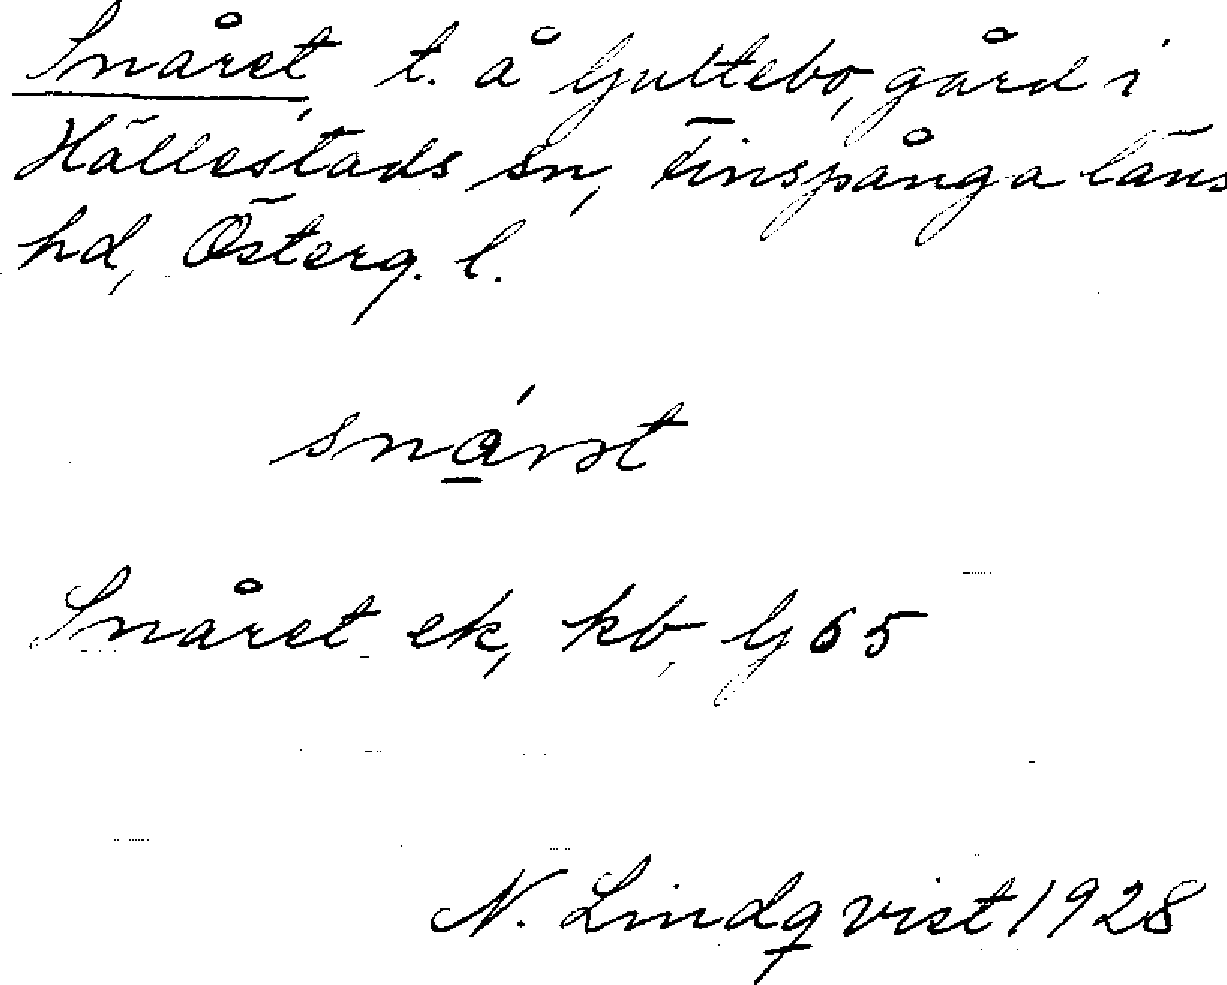 Snåret, t. å Gultebo, gård i
Hällestads sn, Finspånga läns
hd, Österg. l.
snǻ̱rət
Snåret ek, kb, G 65
N. Lindqvist 1928